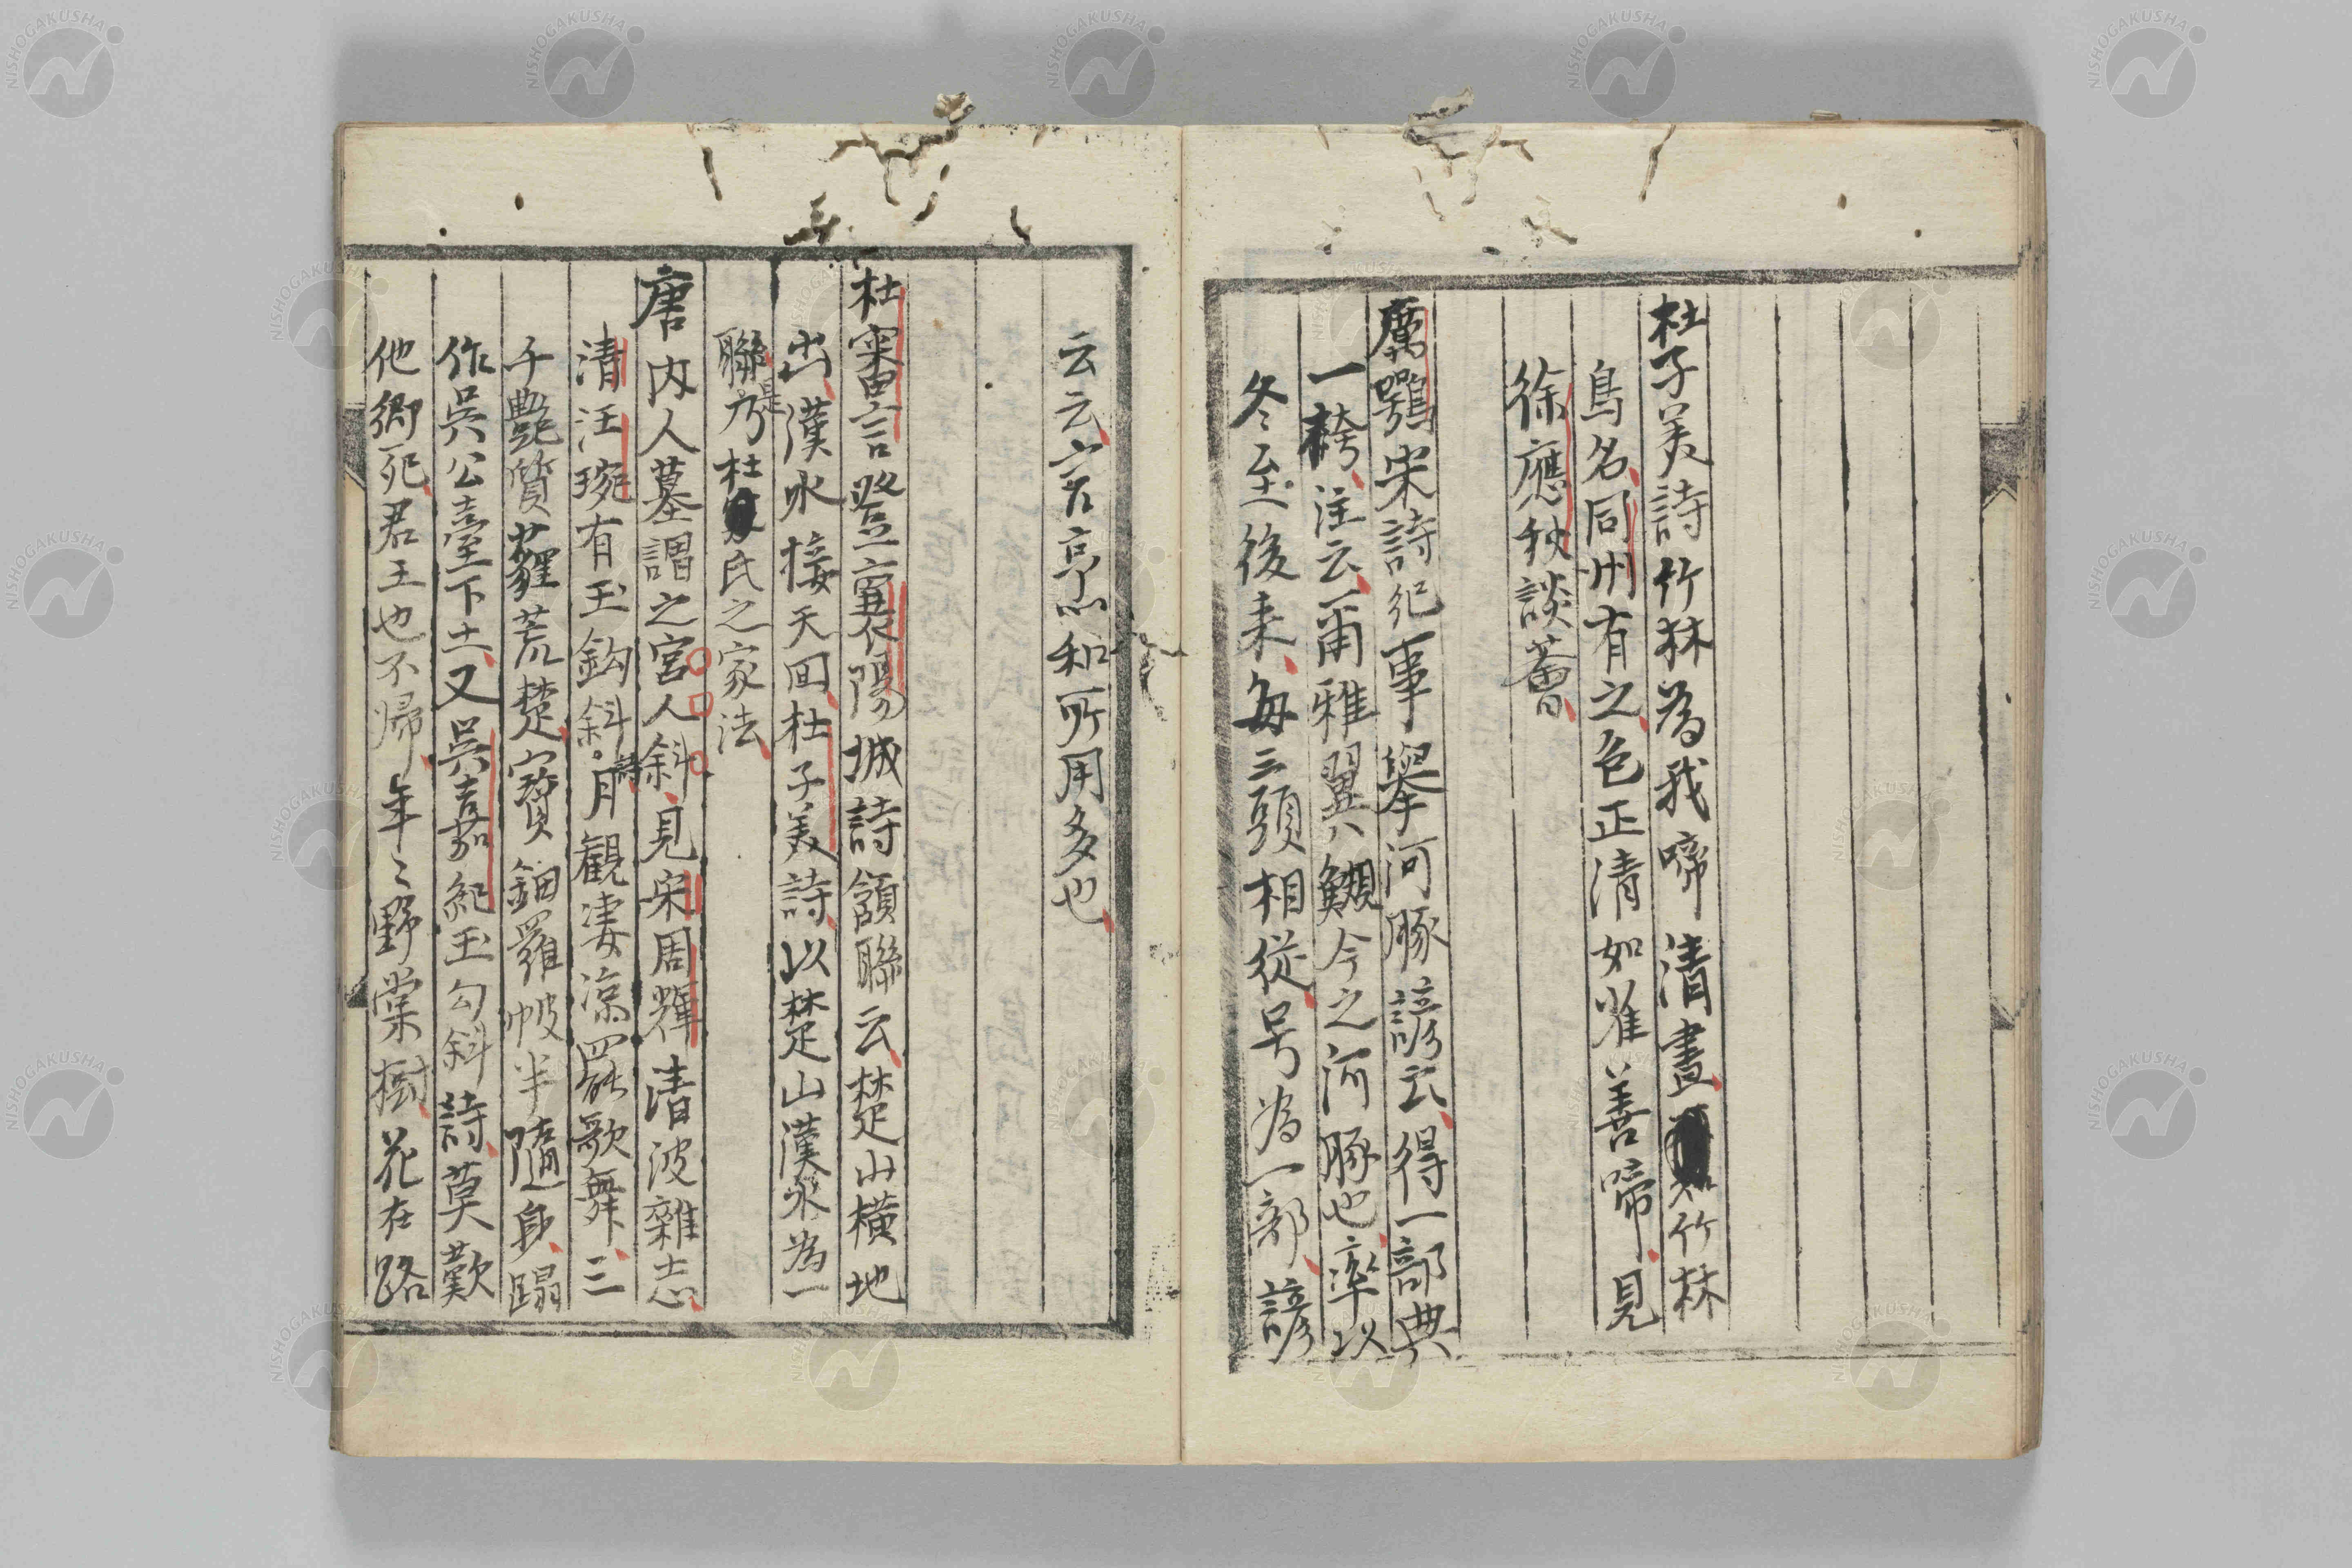 杜子美詩竹林為我啼清晝竹林
鳥名同州有之色正清如雀善啼見
徐應秋談薈
厲鶚宋詩紀事舉河豚諺云得一部典
一袴注云爾雅翼鯢今之河豚也率以
冬至後来每三頭相從号為一部諺
云云言烹和所用多也
杜審言登襄陽城詩頷聯云楚山橫地
出漢水接天回杜子美詩以楚山漢水為一
聯乃是杜氏之家法
唐内人墓謂之宮人斜見宋周輝清波雜志
清汪琬有玉鈎斜詩月觀淒涼罷歌舞三
千艷質薶荒楚寶鈿羅帔半隨身蹋
作吳公臺下土又吳嘉紀玉勾斜詩莫歎
他鄉死君王也不帰年〻野棠樹花在路
NISHOGAKUSHA